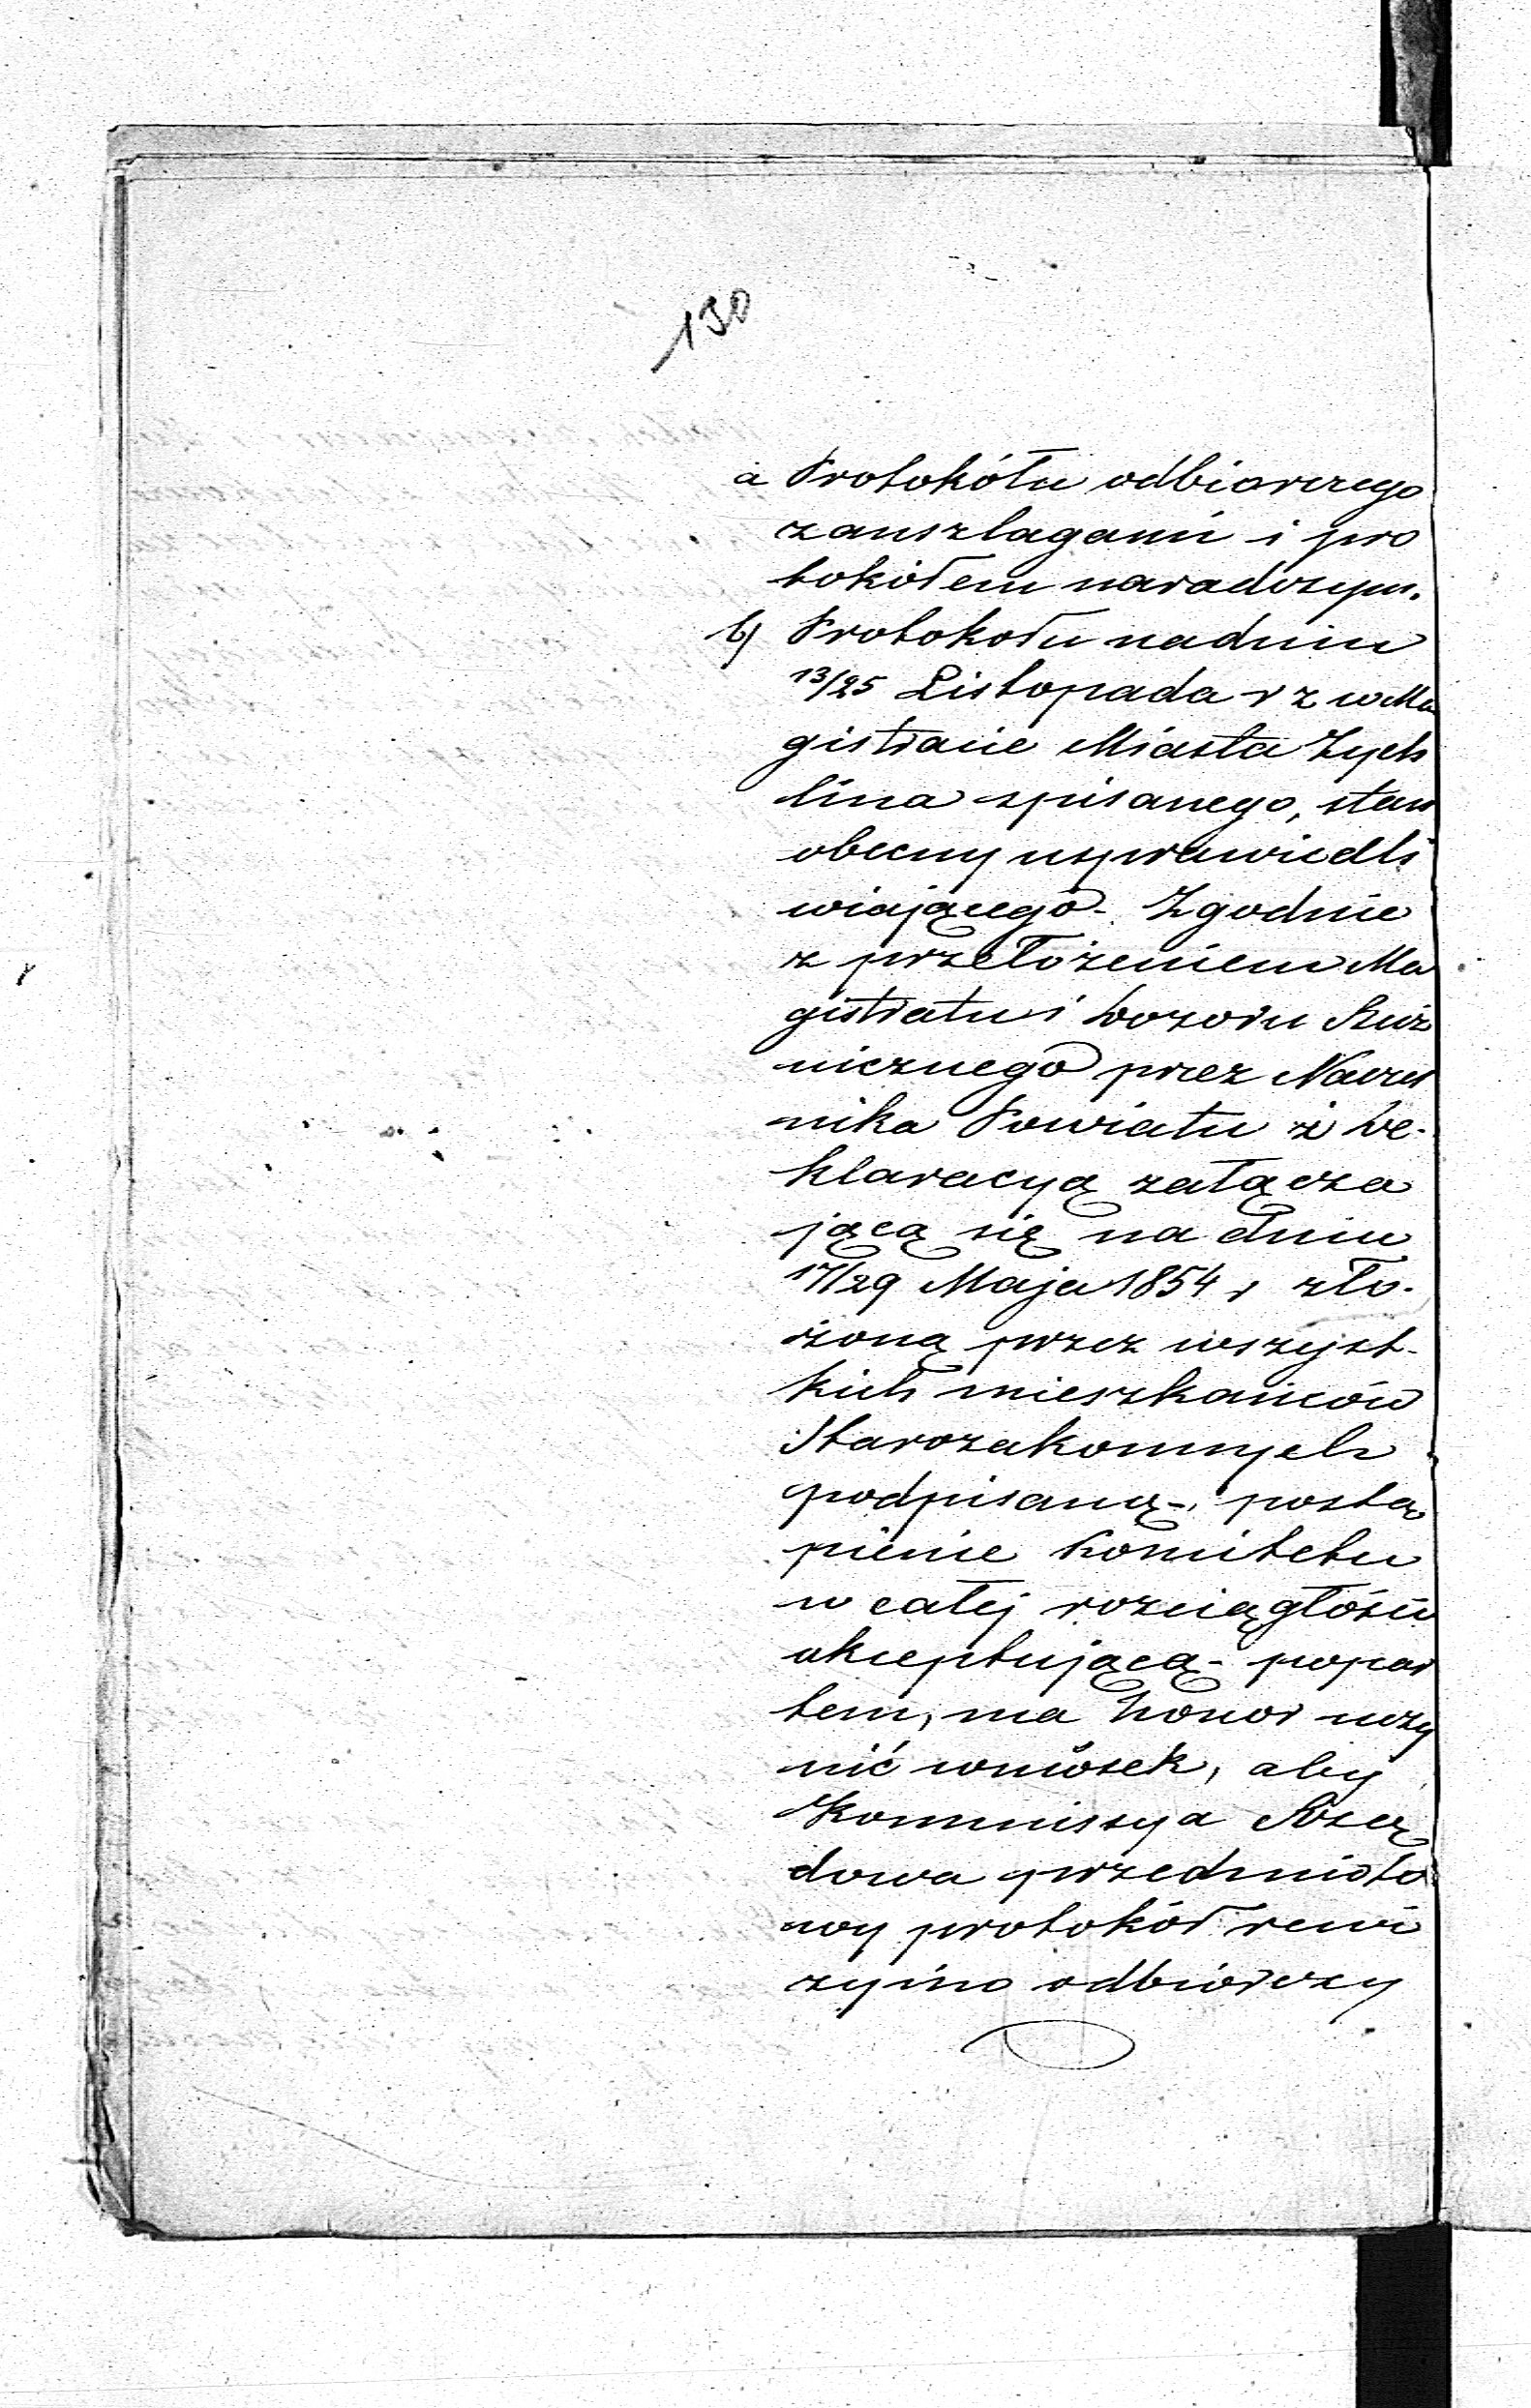 130
a Protokółu odbiorczego
zanszlagami i pro
tokółem naradczym.
b) Protokołu nadniu
13/25 Listopada r z w Ma
gistracie Miasta Żych
lina spisanego, stan
obecny usprawiedli
wiającego - Zgodnie
z przełożeniem Ma
gistratu i Dozoru Buż
nicznego przez Naczel
nika Powiatu i De-
klaracyą załącza
jącą się na dniu
17/29 Maja 1854 r zło-
żoną przez wszyst-
kich mieszkańców
Starozakonnych
podpisaną -, postą
pienie Komitetu
w całej rozciągłości
akceptującą - popar
tem, ma honor uczy
nić wniosek, aby
Kommissya Rzą
dowa przedmioto
wy protokół rewi
zyino odbiorczy